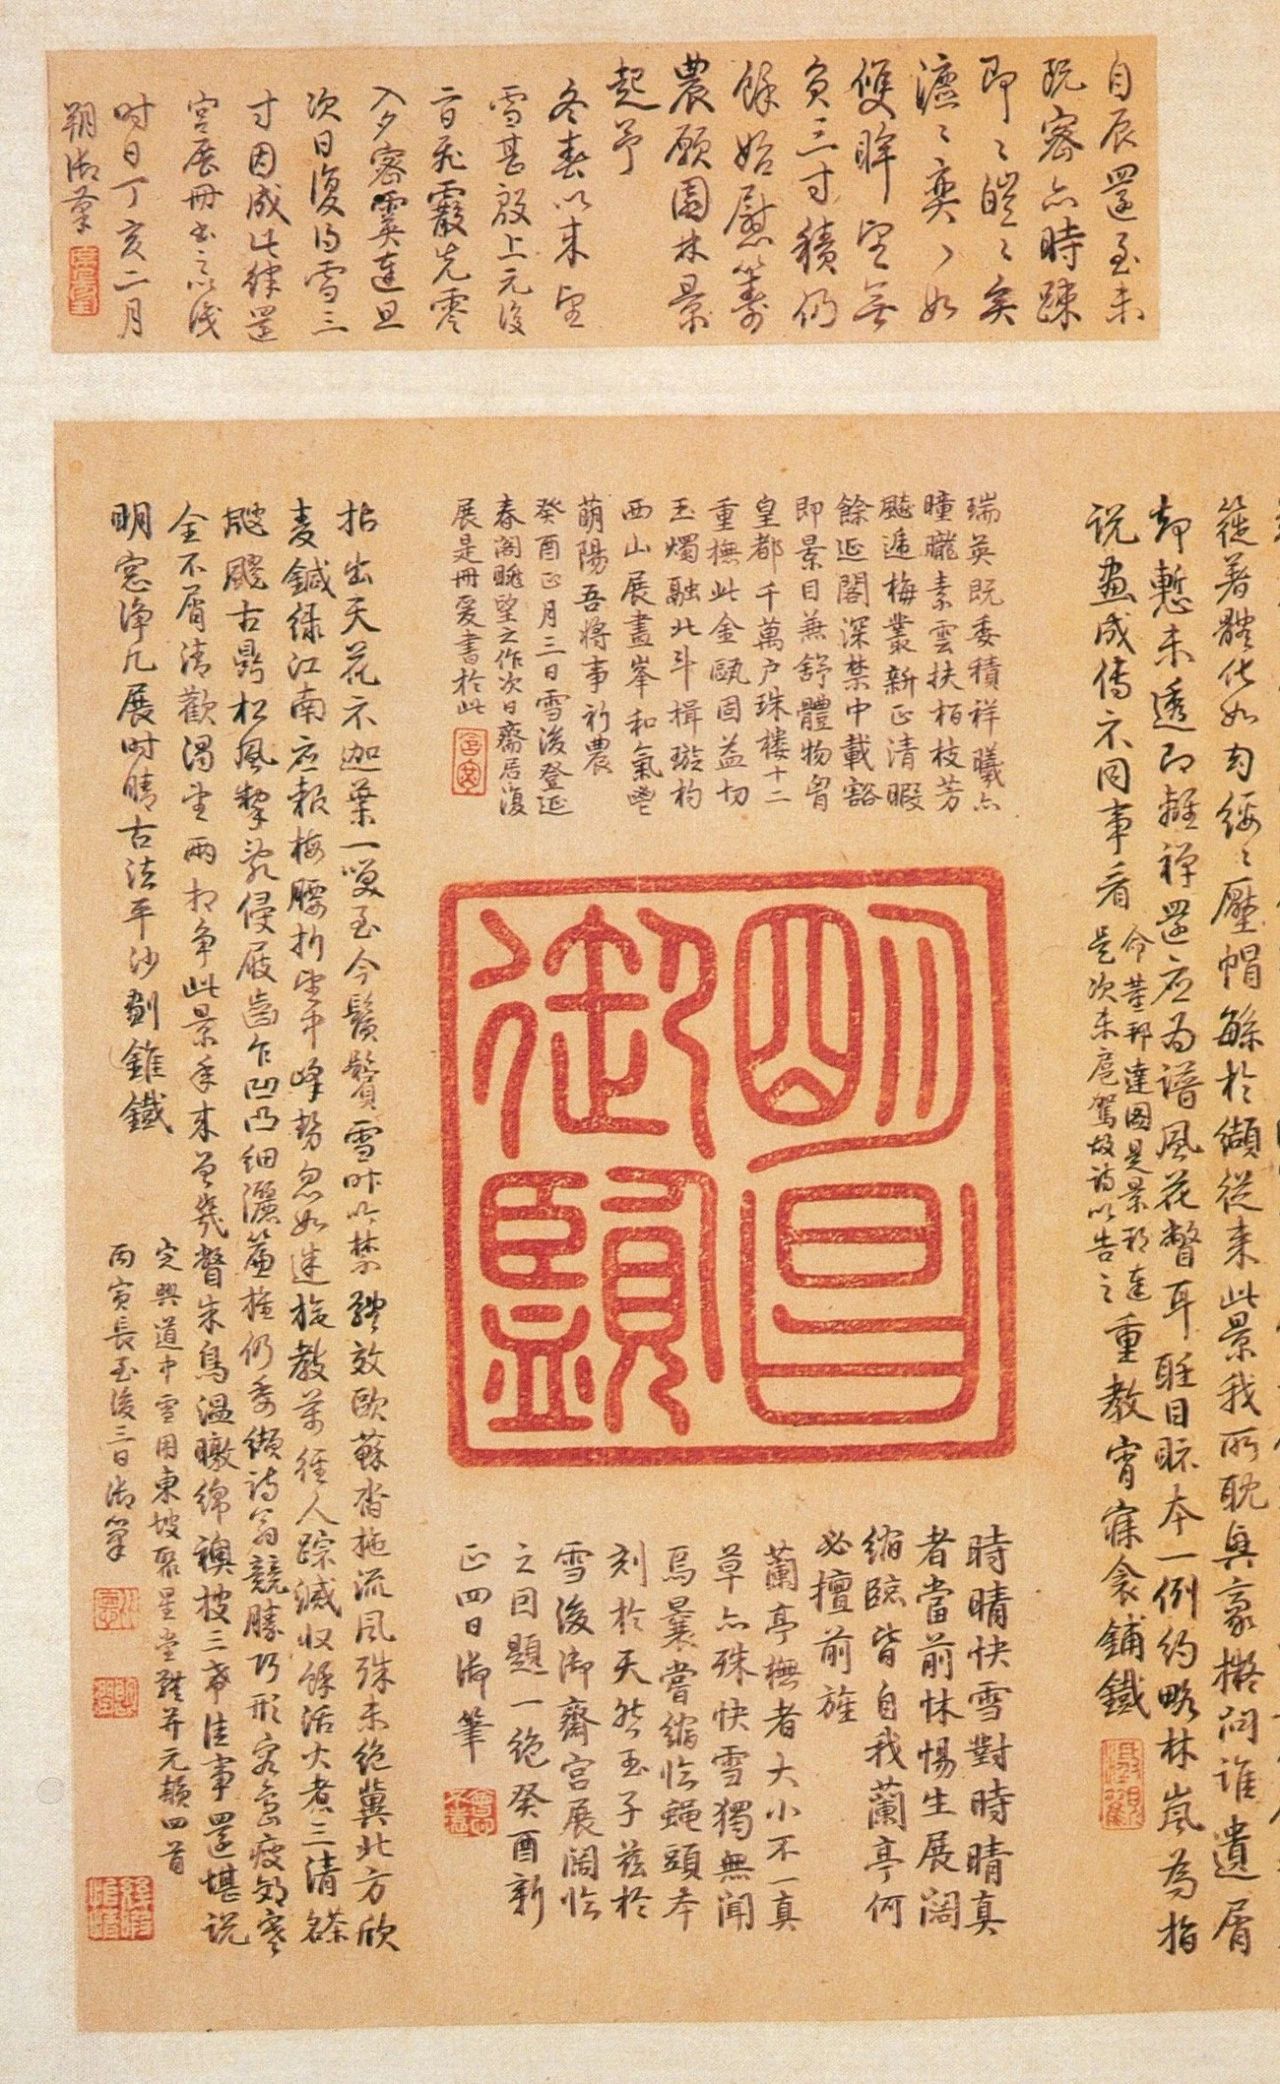 自辰還至未
玩密亦時踈
即〻皚〻矣
瀌〻奕〻如
雙眸望無
負三寸積仍
餘始慰籌
農願園林景
起予
冬春以來望
雪甚殷上元後
二日飛霰先零
入夕密霙達旦
次日復得雪三
寸因成此律還
宮展冊書之以識
時日丁亥二月
朔御筆
簁著體化如勻綏〻壓帽 於纈從来此景我所耽興豪擬問誰遺屑
却慙未透即離禪還應為譜風花瞥耳聒目眎本一例約略林嵐為指
说畫成傳示同事看
命董邦達圖是景邦達
是次未扈駕故詩以告之
重教宵寐衾鋪鐵
瑞英既委積祥曦亦
曈曨素雲扶栢枝芳
飈遞梅叢新正清暇
餘延閣深禁中載豁
即景目兼舒體物胷
皇都千萬户珠樓十二
重撫此金甌固益切
玉燭融北斗揖璇杓
西山展畫峯和氣鬯
萌陽吾將事祈農
癸酉正月三日雪後登延
春閣眺望之作次日齋居復
展是冊爰書於此
明昌
御覽
時晴快雪對時晴真
者當前怵惕生展闊
縮臨皆自我蘭亭何
必擅前旌
蘭亭撫者大小不一真
草亦殊快雪獨無聞
焉曩嘗縮臨蠅頭本
刻於天然玉子兹於
雪後御齋宮展闊臨
之因題一絶癸酉新
正四日御筆
拈出天花示迦葉一咲至今鬢鬢雪昨吟禁體效歐蘇沓拖流風殊未绝冀北方欣
麦鍼绿江南应報梅腰折望中峰势忽如迷旋教萬徑人踪滅収餘活火煮三清
飕飕古鼎松風掣乳侵屐齒乍凹凸细灑簾櫳仍委纈詩翁競勝巧形容島瘦郊寒
全不屑清歡渴望兩相争此景年来曾幾瞥朱鳥温暾綿襖披三希佳事還堪说
明窓淨几展时晴古法平沙劃錐鐵
定興道中雪用東坡聚星堂體并元韻四首
丙寅長至後三日御筆